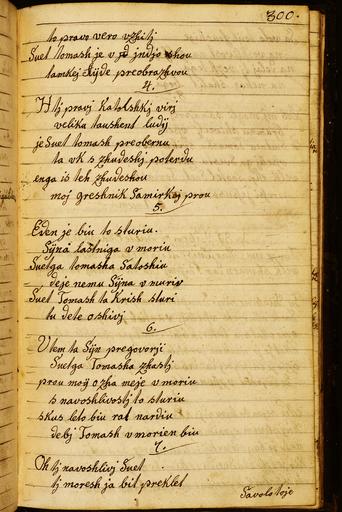 300.
to pravo vero vzhitj
Suet tomash je v jd jndjo shou
tamkej Rijde preobrazhvou
4.
H tj pravj Katolshkj virj
velika taushent ludij
je Suet tomash preobernu
ta vk s zhudeshj poterdu
enga is teh zhudeshou
moj greshnik Samirkej prou
5.
Eden je biu to sturiu.
Sijna lastniga v moriu
Suetga tomasha Satoshiu
deje nemu Sijna v muriv
Suet Tomash ta Krish sturi
tu dete oshivj
6.
V tem ta Sijn pregovorji
Suetga Tomasha zhastj
prou moij ozha meje v moriu
s navoshlivostj to sturiu
skus leto biu rat nardiu
debj Tomash v morien biu
7.
Oh tj navoshlivj Suet
tj moresh ja bit preklet
Savolo toje